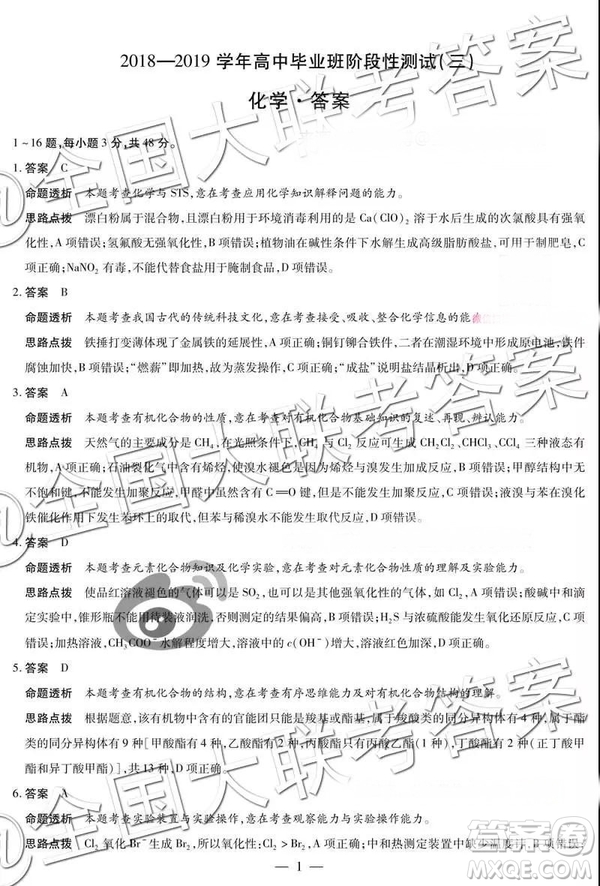 2018—2019 学年高中毕业班阶段性测试(三)
化学·答案
1~16题,每小题3分,共48分。
1. 答案 C
命题透析 本题考查化学与STS,意在考查应用化学知识解释问题的能力。
思路点拨 漂白粉属于混合物,且漂白粉用于环境消毒利用的是 Ca(ClO)₂ 溶于水后生成的次氯酸具有强氧
化性,A项错误;氢氟酸无强氧化性,B项错误;植物油在碱性条件下水解生成高级脂肪酸盐,可制肥皂,C
项正确;NaNO₂ 有毒,不能代替食盐用于腌制食品,D项错误。
2. 答案 B
命题透析 本题考查我国古代的传统科技文化,意在考查接受、吸收、整合化学信息的能
思路点拨 铁捶打变薄体现了金属铁的延展性,A项正确;铜钉铆合铁件,二者在潮湿环境中形成原电池,铁件
的腐蚀加快,B项错误;“燃薪”即加热,故发生分解反应,C项正确;“成盐”说明盐结晶析出,D项正确。
3. 答案 A
命题透析 本题考查有机化合物的性质,意在考查对有机化合物基础知识的复述、再现、辨认能力。
思路点拨 天然气的主要成分是 CH₄,在光照条件下,CH₄ 与 Cl₂ 反应可生成 CH₂Cl₂、CHCl₃、CCl₄ 三种液态有
机物,A项正确;石油裂化气中含有烯烃,使溴水褪色是因为烯烃与溴发生加成反应,B项错误;甲醇结构中无
不饱和键,不能发生加聚反应,甲醛中虽然含 C═O 键,但可以发生加聚反应,C项错误;液溴与苯在溴化
铁催化作用下发生苯环上的取代,但苯与稀溴水不能发生取代反应,D项错误。
4. 答案 D
命题透析 本题考查元素化合物知识及化学实验,意在考查对元素化合物性质的理解及实验能力。
思路点拨 使品红溶液褪色的气体可以是 SO₂,也可以是其他强氧化性的气体,如 Cl₂ 等,A项错误;酸碱中和
滴定实验中,锥形瓶不能用待装液润洗,否则测定的结果会偏高,B项错误;H₂S 与浓硫酸会发生反应,C项错
误;加热溶液,CH₃COO⁻ 水解程度增大,溶液中的 c(OH⁻)增大,溶液红色变深,D项正确。
5. 答案 D
命题透析 本题考查有机化合物的结构,意在考查有序思维能力及对有机化合物结构的理解。
思路点拨 根据题意,该有机化合物中含有的官能团只能是羧基或酯基,属于羧酸类的同分异构体有4种,属于酯
类的同分异构体有9种[甲酸酯有4种,乙酸酯有2种,丙酸酯只有丙酸乙酯1种,丁酸酯有2种(丁酸甲酯
和异丁酸甲酯)],共13种,D项正确。
6. 答案 A
命题透析 本题考查实验装置与实验操作,意在考查观察能力与实验操作能力。
思路点拨 Cl₂ 氧化 Br⁻ 生成 Br₂,所以氧化性:Cl₂ > Br₂,A项正确;中和热测定装置中缺少环形玻璃搅拌棒,B
— 1 —
@全国大联考答案
答案圈
MXQE.COM